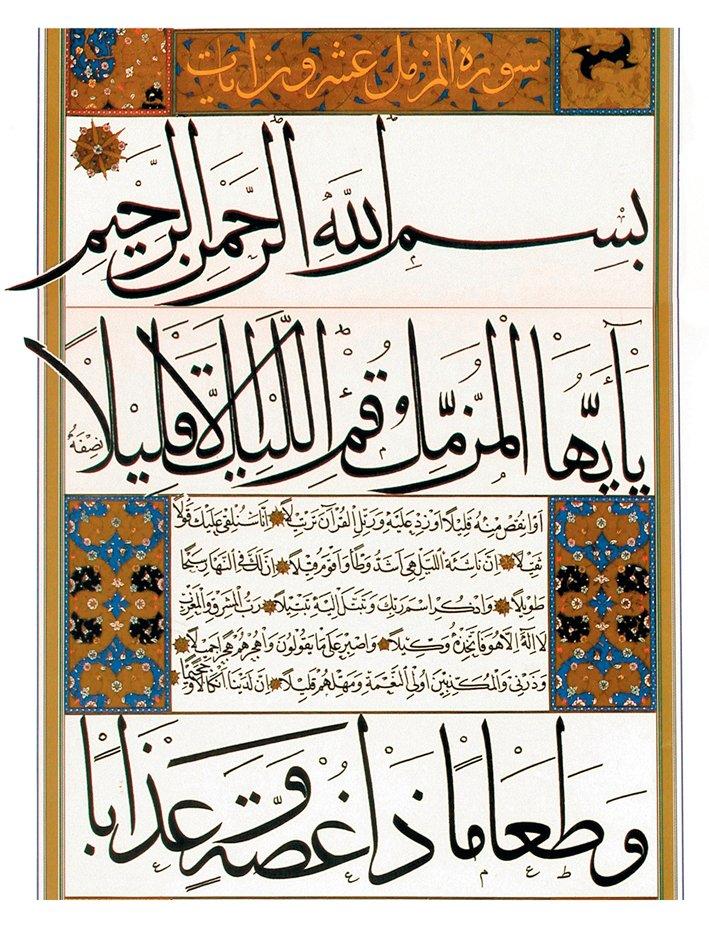 سورة المزمل عشرون ايات
بِسْمِ اللَّهِ الرَّحْمَنِ الرَّحِيمِ
يَا أَيُّهَا الْمُزَّمِّلُ قُمِ اللَّيْلَ إِلَّا قَلِيلًا نِصْفَهُ
أَوِ انْقُصْ مِنْهُ قَلِيلًا أَوْ زِدْ عَلَيْهِ وَرَتِّلِ الْقُرْآنَ تَرْتِيلًا إِنَّا سَنُلْقِي عَلَيْكَ قَوْلًا
ثَقِيلًا إِنَّ نَاشِئَةَ اللَّيْلِ هِيَ أَشَدُّ وَطْأً وَأَقْوَمُ قِيلًا إِنَّ لَكَ فِي النَّهَارِ سَبْحًا
طَوِيلًا وَاذْكُرِ اسْمَ رَبِّكَ وَتَبَتَّلْ إِلَيْهِ تَبْتِيلًا رَبُّ الْمَشْرِقِ وَالْمَغْرِبِ
لَا إِلَهَ إِلَّا هُوَ فَاتَّخِذْهُ وَكِيلًا وَاصْبِرْ عَلَى مَا يَقُولُونَ وَاهْجُرْهُمْ هَجْرًا جَمِيلًا
وَذَرْنِي وَالْمُكَذِّبِينَ أُولِي النَّعْمَةِ وَمَهِّلْهُمْ قَلِيلًا إِنَّ لَدَيْنَا أَنْكَالًا وَجَحِيمًا
وَطَعَامًا ذَا غُصَّةٍ وَعَذَابًا